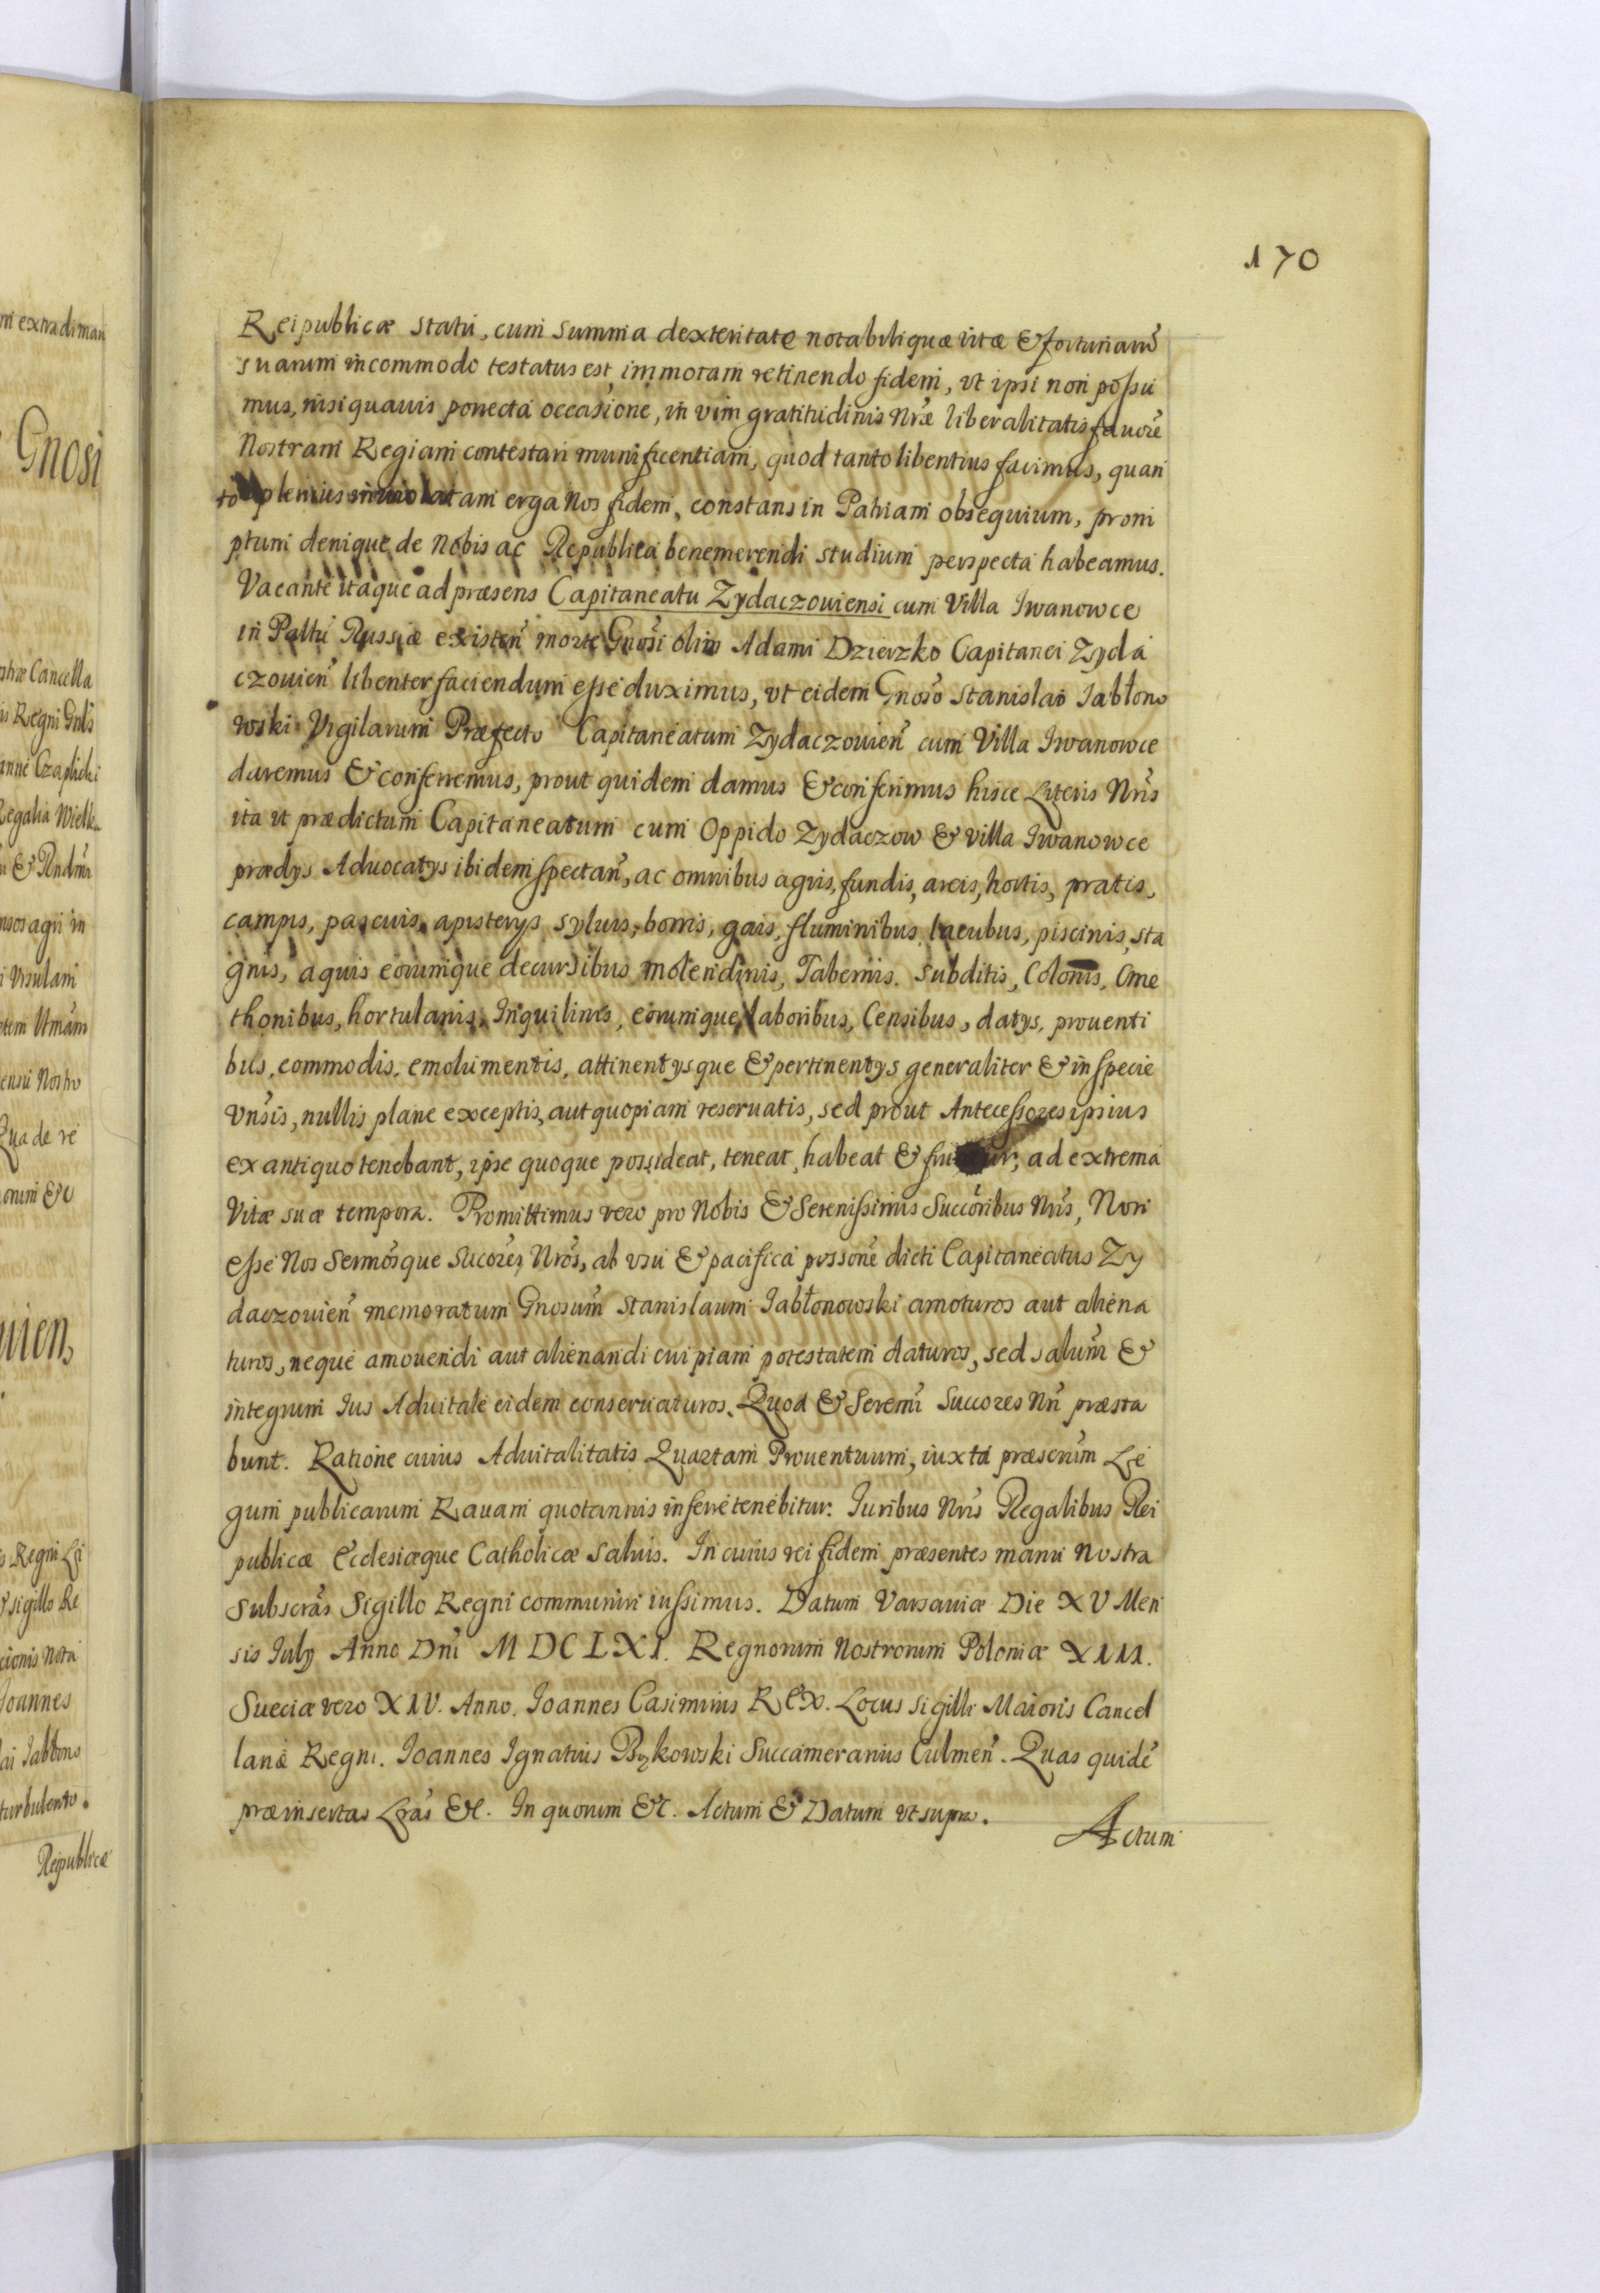 170
Reipublicæ statu, cum summa dexteritate notabilique vitæ & fortunarũ
suarum incommodo testatus est, immotam retinendo fidem, vt ipsi non possu
mus, nisi quavis porrecta occasione, in vim gratitudinis Nræ liberalitatis favore
Nostram Regiam contestari munificentiam, quod tanto libentius facimus, quan
to plenius inviolatam erga Nos fidem, constans in Patriam obsequium, prom
ptum denique de Nobis ac Republica benemerendi studium perspecta habeamus.
Vacante itaque ad præsens Capitaneatu Zydaczoviensi cum Villa Iwanowce
in Pallũ Russiæ existeñ morte Gnosi olim Adami Dzierzko Capitanei Zyda
czovieñ libenter faciendum esse duximus, vt eidem Gnoso Stanislao Jabłono
wski Vigilarum Præfecto Capitaneatum Zydaczovieñ cum Villa Iwanowce
daremus & conferremus, prout quidem damus & conferimus hisce Literis Nris
ita ut prædictum Capitaneatum cum Oppido Zydaczow & villa Iwanowce
prædys Advocatys ibidem spectañ, ac omnibus agris, fundis, areis, hortis, pratis,
campis, pascuis, apisterys, sylvis, borris, gais, fluminibus, lacubus, piscinis, sta
gnis, aquis eorumque decursibus, molendinis, Tabernis, subditis, Colonis, Cme
thonibus, hortulanis, Inquilinis, eorumque laboribus, Censibus, datys, proventi
bus, commodis, emolumentis, attinentysque & pertinentys generaliter & in specie
Vnsis, nullis plane exceptis, aut quopiam reservatis, sed prout Antecessores ipsius
ex antiquo tenebant, ipse quoque possideat, teneat, habeat & ad extrema
Vitæ suæ tempora. Promittimus vero pro Nobis & Serenissimis Succoribus Nris, Non
esse Nos Sermosque Sucores Nros, ab vsu & pacifica possone dicti Capitaneatus Zy
daczovieñ memoratum Gnosum Stanislaum Jabłonowski amoturos aut aliena
turos, neque amovendi aut alienandi cuipiam potestatem daturos, sed salvum &
integrum Ius Advitale eidem conservaturos. Quod & Seremi Succores Nri præsta
bunt. Ratione cuius Advitalitatis Quartam Proventuum, iuxta præscrium Le
gum publicarum Ravam quotannis inferre tenebitur. Iuribus Nris Regalibus Rei
publicæ Ecclesiæque Catholicæ salvis. In cuius rei fidem præsentes manu Nostra
Subscras Sigillo Regni communiri iussimus. Datum Varsaviæ Die XV Men
sis July Anno Dni MDCLXI. Regnorum Nostrorum Poloniæ XIII.
Sueciæ vero XIV. Anno. Ioannes Casimirus Rex. Locus Sigilli Maioris Cancel
lariæ Regni. Ioannes Ignatius Bąkowski Succamerarius Culmeñ. Quas quidẽ
præinsertas Lras &c. In quorum &c. Actum & Datum vt supra.
Actum